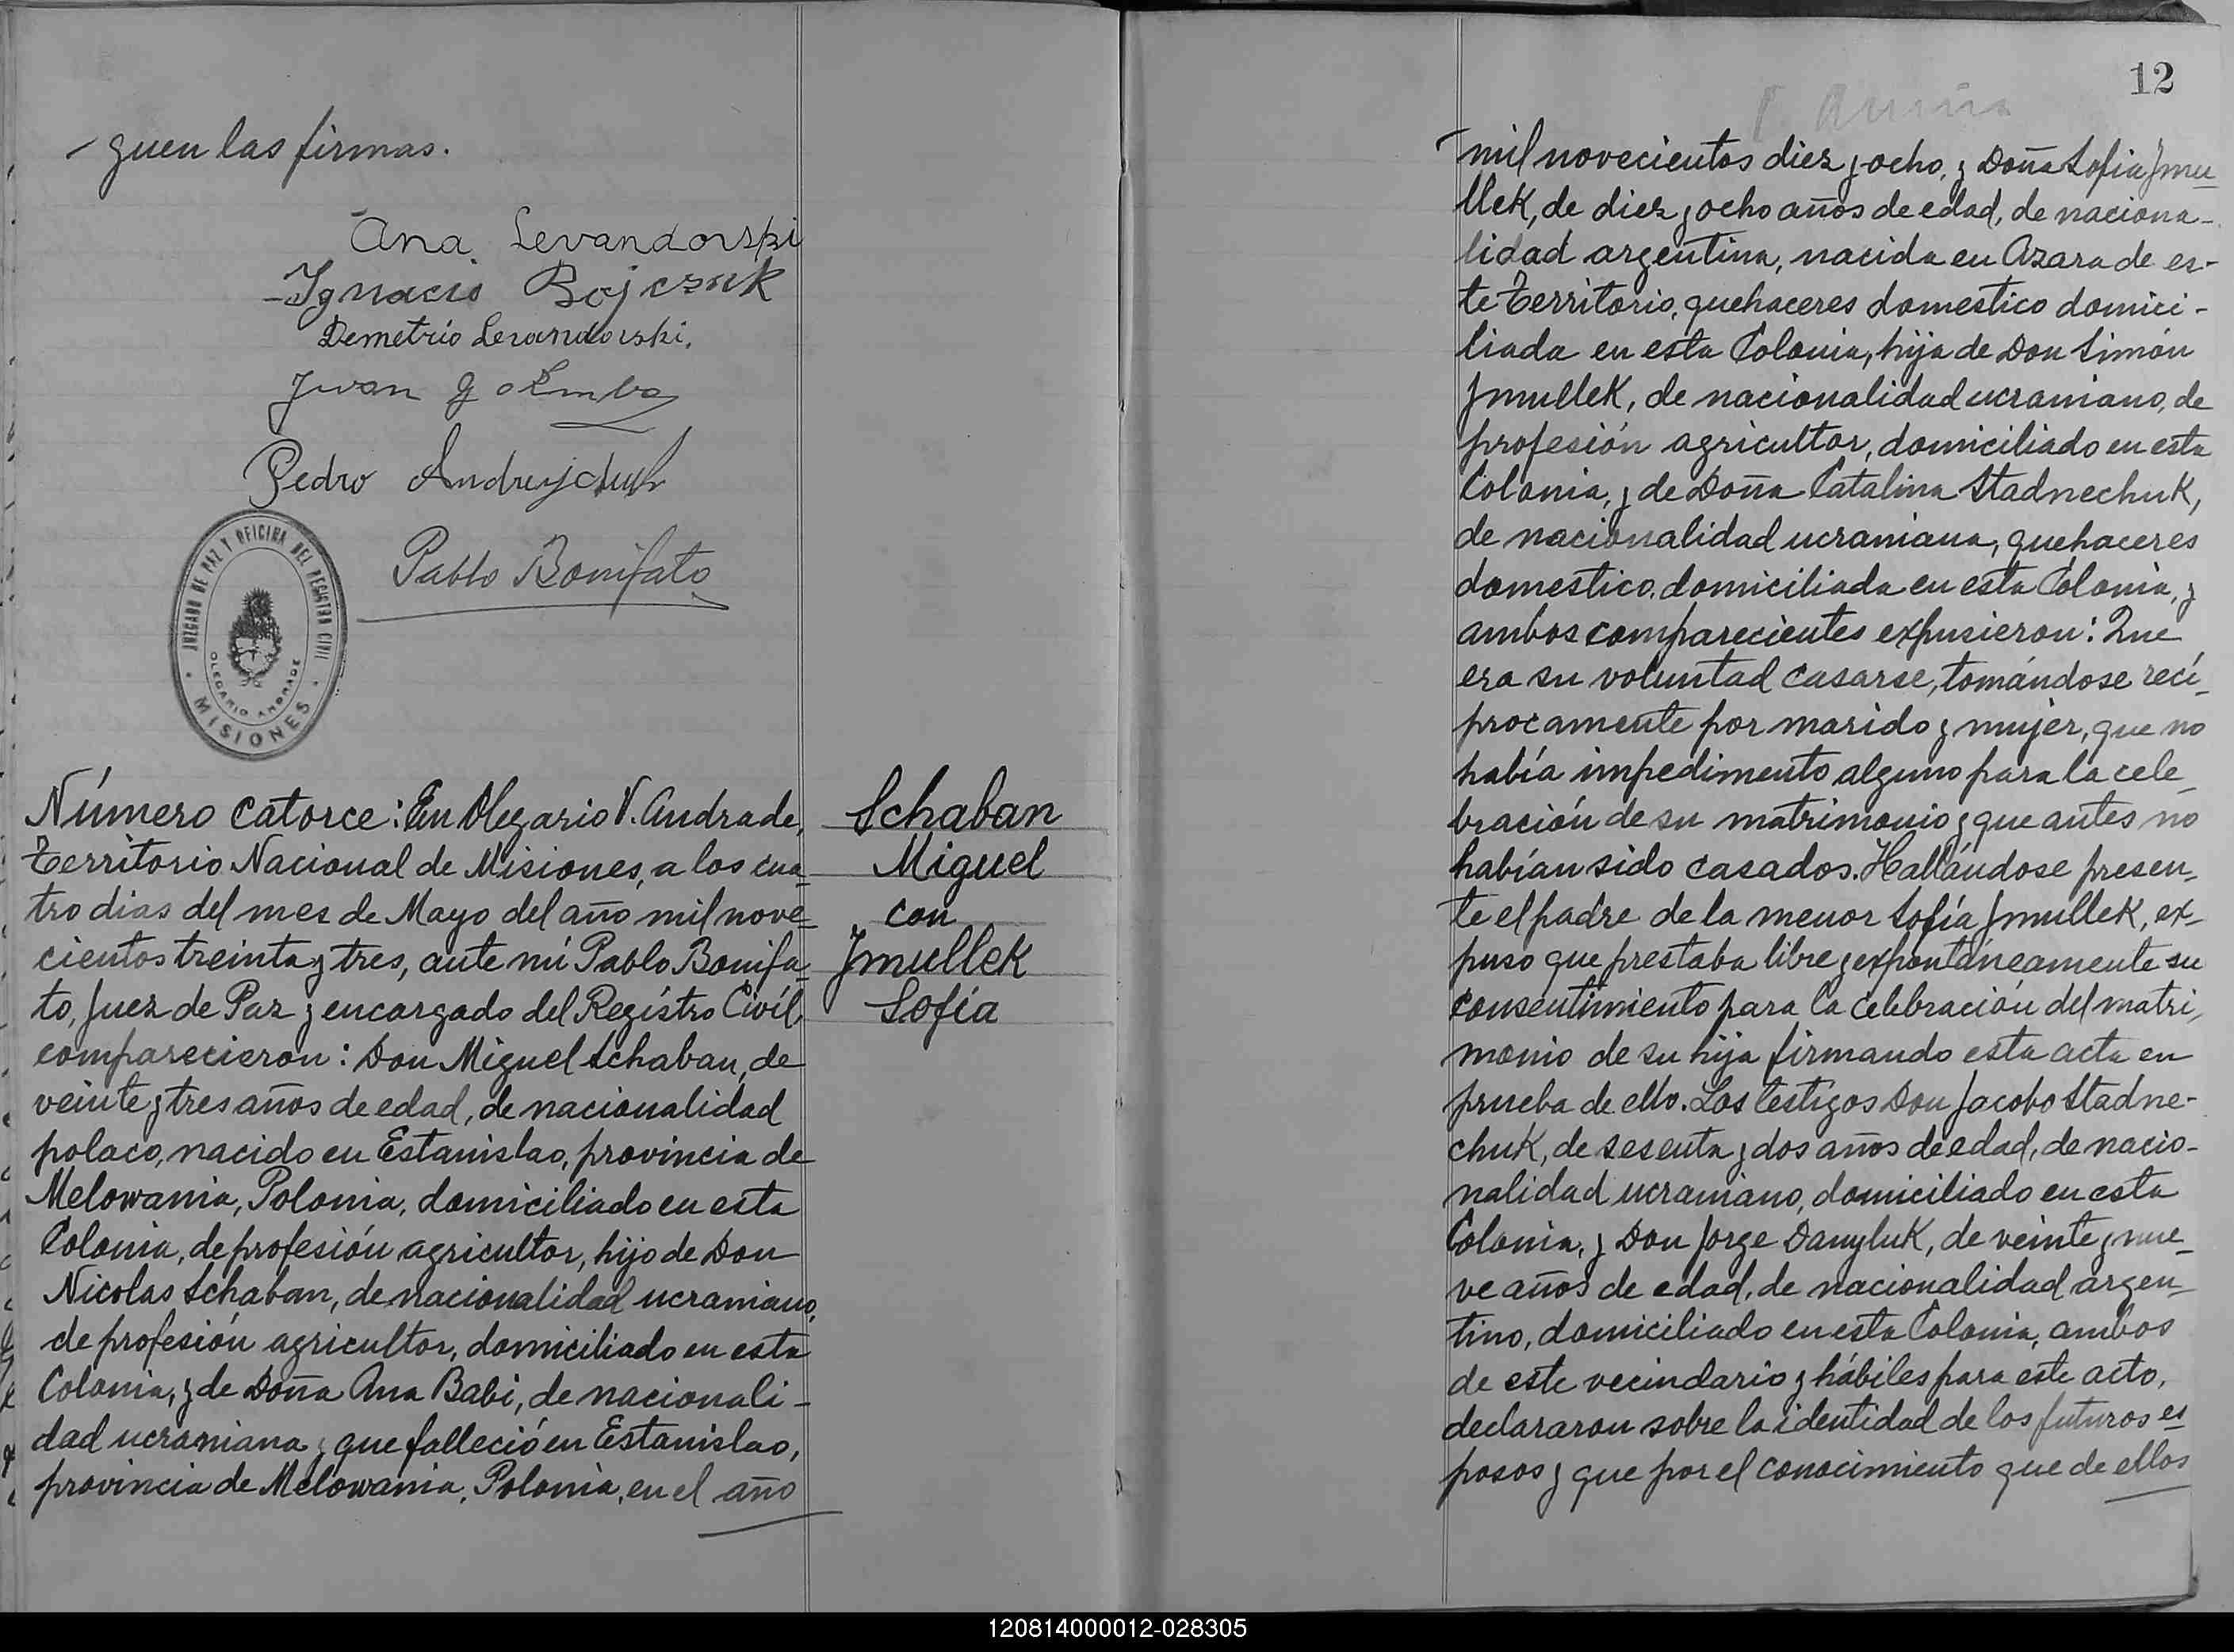 guen las firmas.
Ana Levandorski
Ignacio Bojczuk
Demetrio Levandorski.
Juan Golemba
Pedro Andrujchuk
Pablo Bonifato
JUZGADO DE PAZ Y OFICINA DEL REGISTRO CIVIL
OLEGARIO ANDRADE
MISIONES
Número catorce: En Olegario V. Andrade,
Territorio Nacional de Misiones, a los cua-
tro dias del mes de Mayo del año mil nove-
cientos treinta y tres, ante mí Pablo Bonifa-
to, Juez de Paz y encargado del Regístro Civíl,
comparecieron: Don Miguel Schaban, de
veinte y tres años de edad, de nacionalidad
polaco, nacido en Estanislao, provincia de
Melowania, Polonia, domiciliado en esta
Colonia, de profesión agricultor, hijo de Don
Nicolas Schaban, de nacionalidad ucraniano,
de profesión agricultor, domiciliado en esta
Colonia, y de Doña Ana Babi, de nacionali-
dad ucraniana y que falleció en Estanislao,
provincia de Melowania, Polonia, en el año
Schaban
Miguel
con
Jmullek
Sofía
12
mil novecientos diez y ocho, y Doña Sofia Jmu-
llek, de diez y ocho años de edad, de naciona-
lidad argentina, nacida en Azara de es-
te Territorio, quehaceres domestico domici-
liada en esta Colonia, hija de Don Simón
Jmullek, de nacionalidad ucraniano, de
profesión agricultor, domiciliado en esta
Colonia, y de Doña Catalina Stadnechuk,
de nacionalidad ucraniana, quehaceres
domestico, domiciliada en esta Colonia, y
ambos comparecientes expusieron: Que
era su voluntad casarse, tomándose recí-
procamente por marido y mujer, que no
había impedimento alguno para la cele-
bración de su matrimonio y que antes no
habían sido casados. Hallándose presen-
te el padre de la menor Sofía Jmullek, ex-
puso que prestaba libre y expontáneamente su
consentimiento para la celebración del matri-
monio de su hija firmando esta acta en
prueba de ello. Los testigos Don Jacobo Stadne-
chuk, de sesenta y dos años de edad, de nacio-
nalidad ucraniano, domiciliado en esta
Colonia, y Don Jorge Danyluk, de veinte y nue-
ve años de edad, de nacionalidad argen-
tino, domiciliado en esta Colonia, ambos
de este vecindario y hábiles para este acto,
declararon sobre la identidad de los futuros es-
posos y que por el conocimiento que de ellos
120814000012-028305